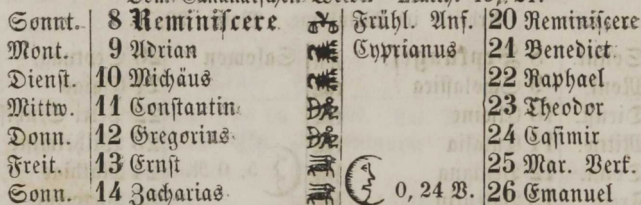 Sonnt. 8 Reminiscere Frühl. Anf. 20 Reminiscere
Mont. 9 Adrian Cyprianus 21 Benedict
Dienst. 10 Michäus 22 Raphael
Mittw. 11 Constantin 23 Theodor
Donn. 12 Gregorius 24 Casimir
Freit. 13 Ernst 25 Mar. Verk.
Sonn. 14 Zacharias 0, 24 V. 26 Emanuel